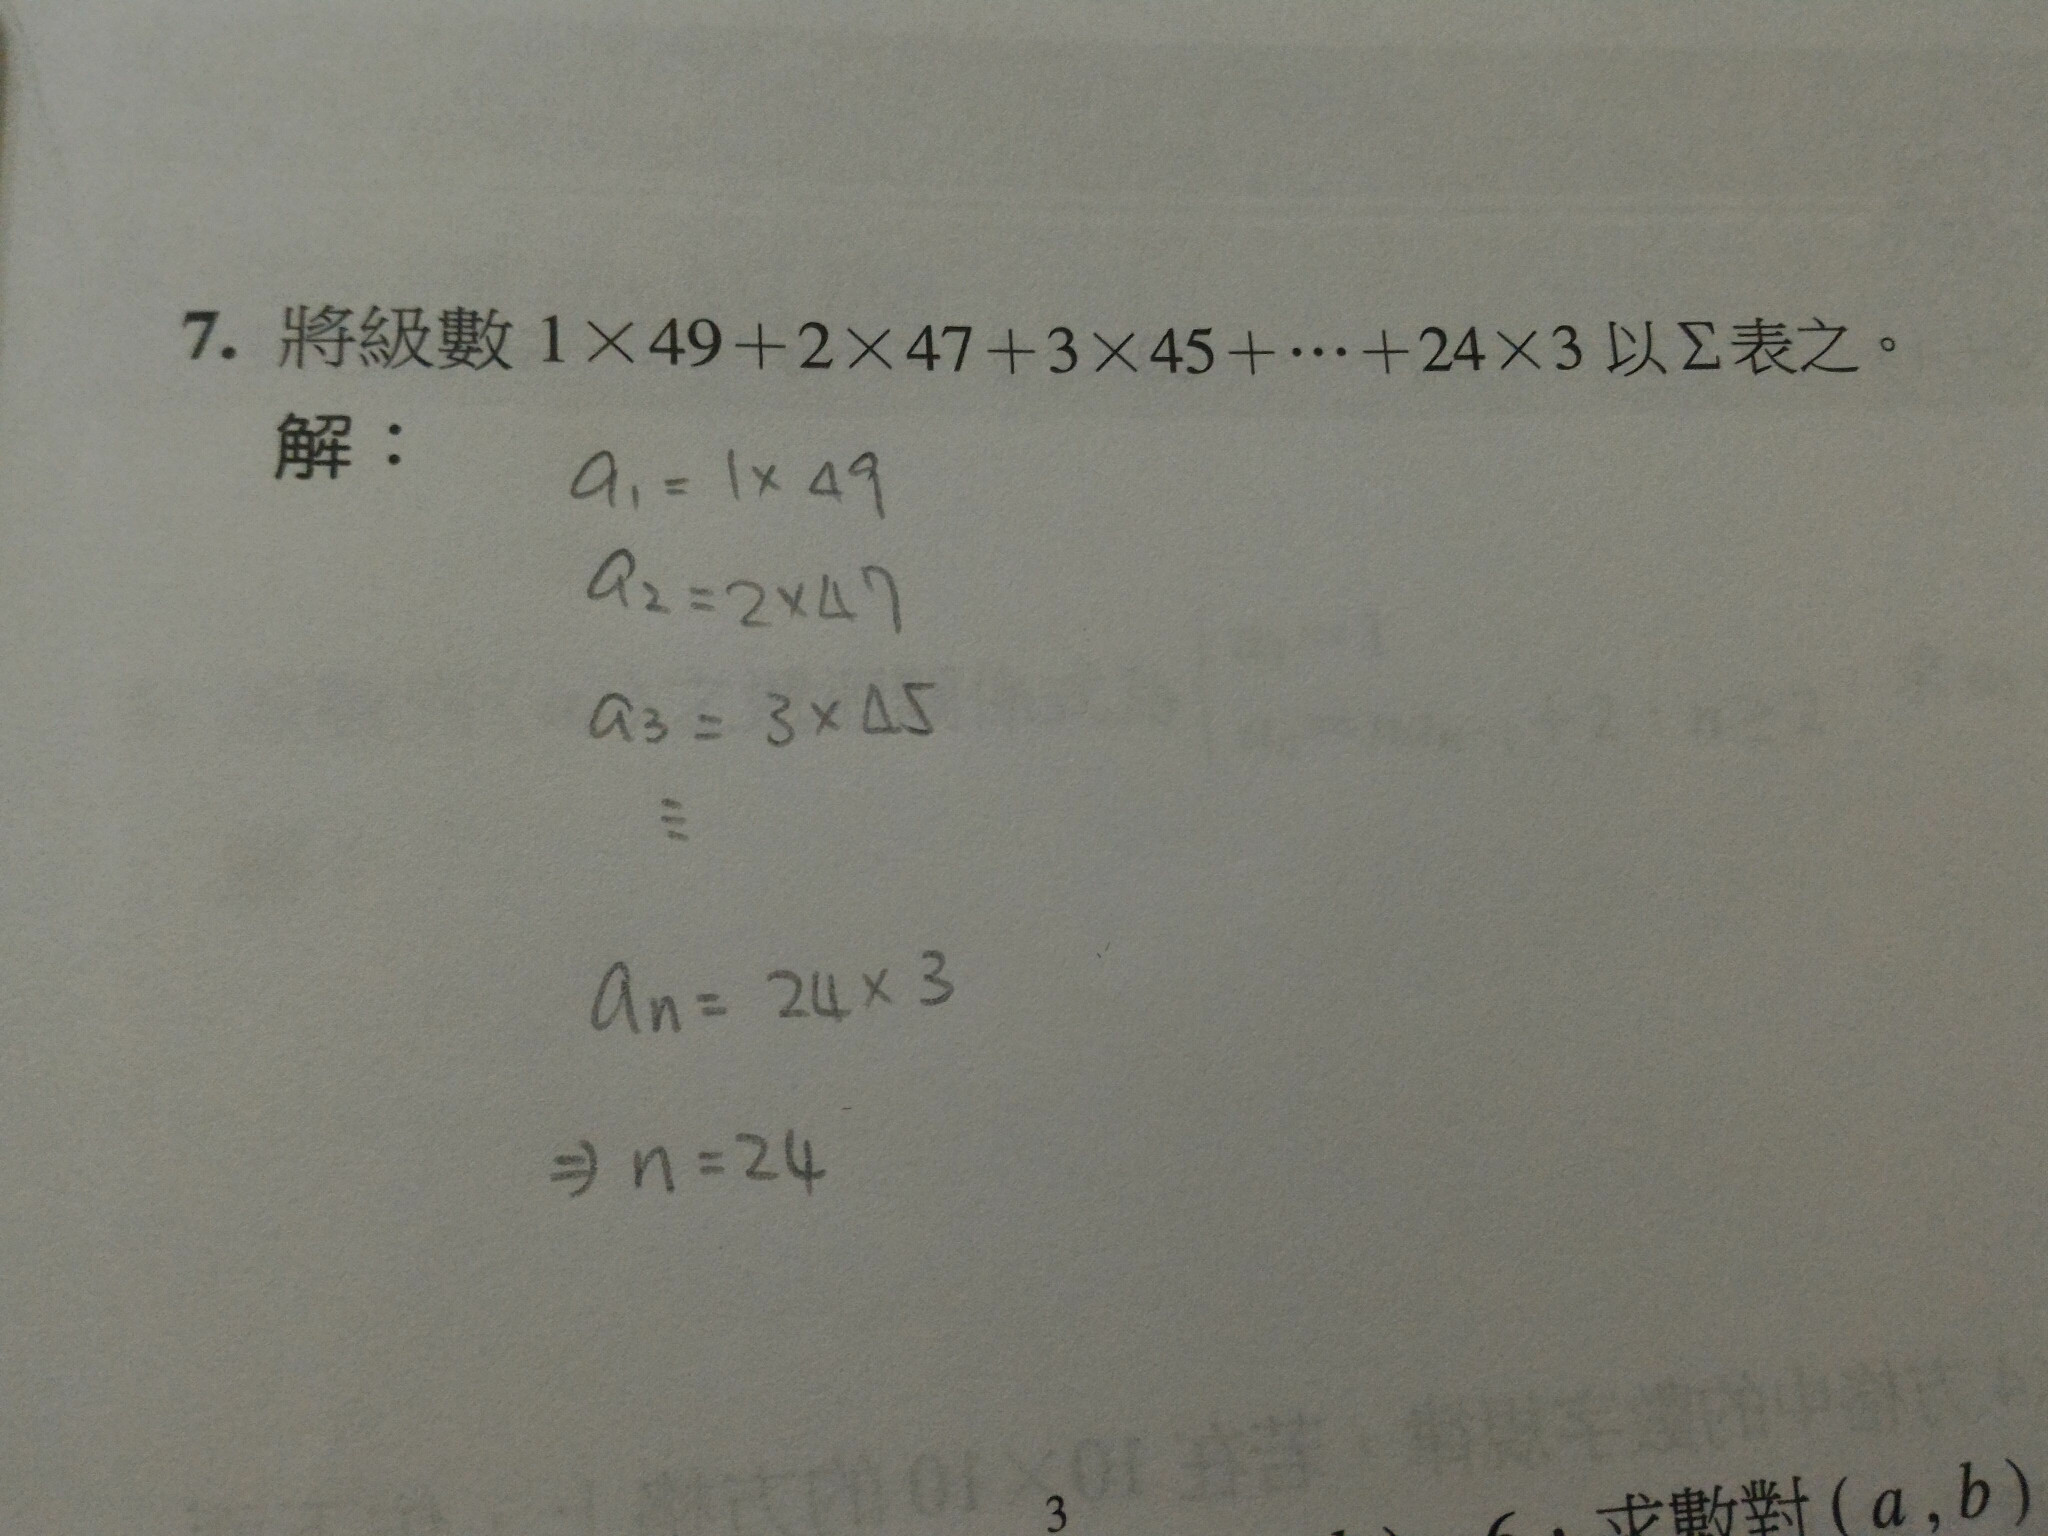 7. 將級數 1×49+2×47+3×45+⋯+24×3 以 Σ 表之。
解：
a₁ = 1×49
a₂ = 2×47
a₃ = 3×45
⋮
aₙ = 24×3
⇒ n = 24
3
6，求數對(a,b)